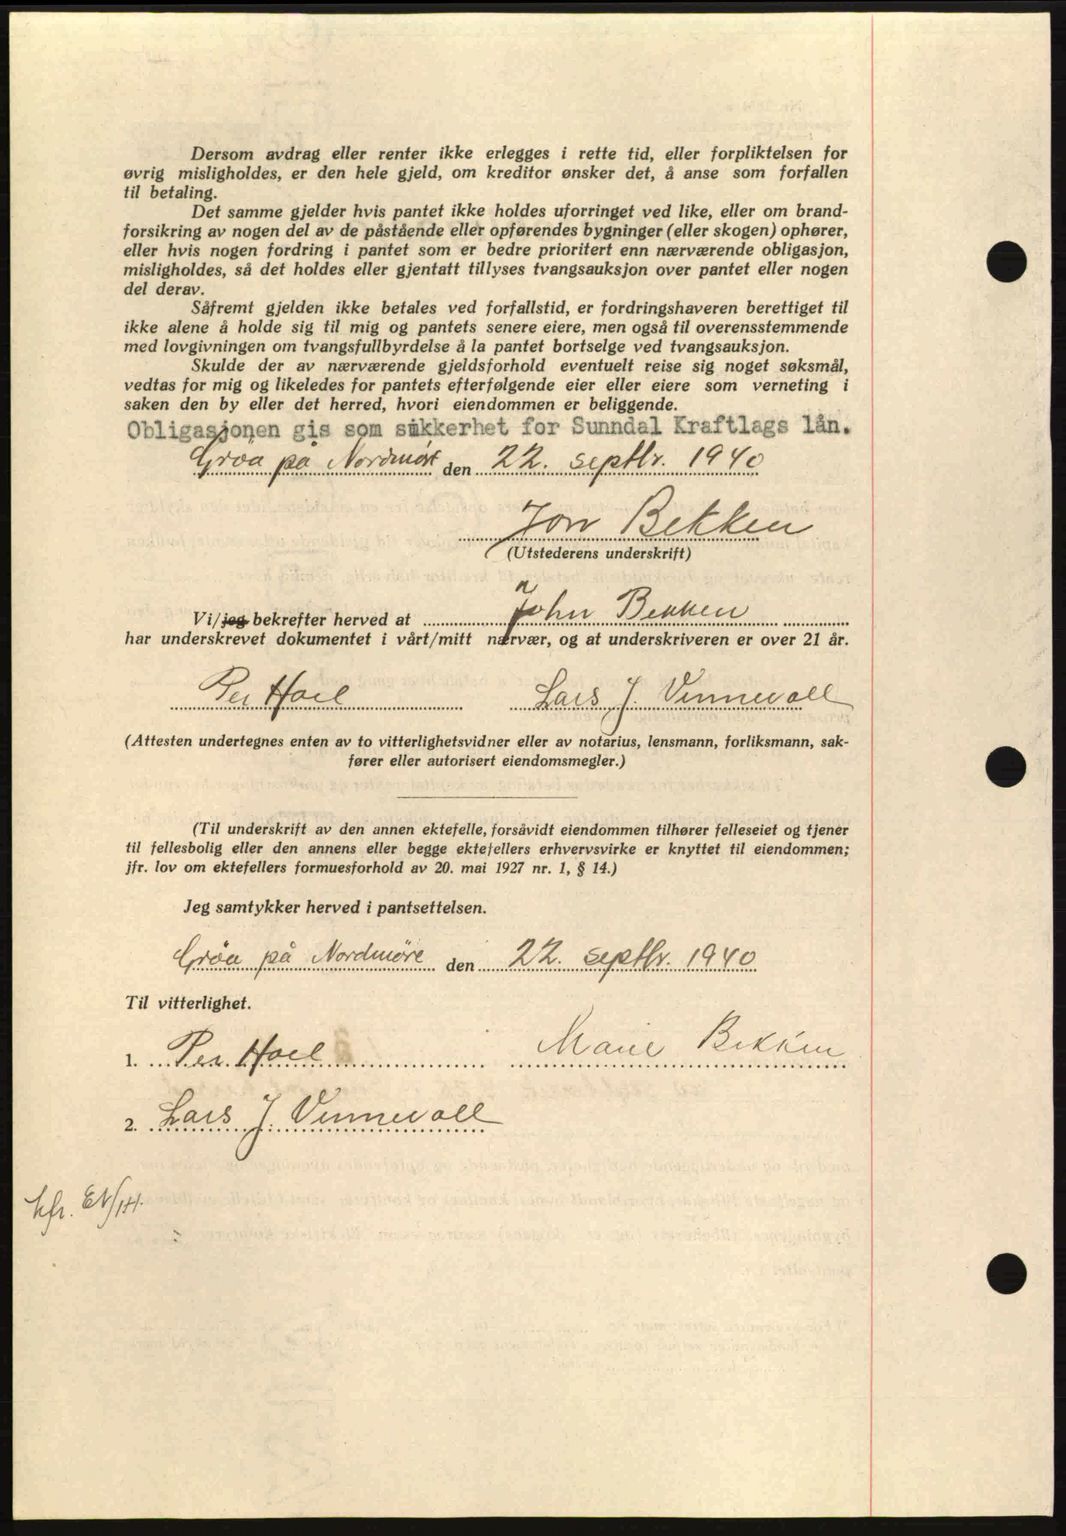 Dersom avdrag eller renter ikke erlegges i rette tid, eller forpliktelsen for
øvrig misligholdes, er den hele gjeld, om kreditor ønsker det, å anse som forfallen
til betaling.
Det samme gjelder hvis pantet ikke holdes uforringet ved like, eller om brand-
forsikring av nogen del av de påstående eller opførendes bygninger (eller skogen) ophører,
eller hvis nogen fordring i pantet som er bedre prioritert enn nærværende obligasjon,
misligholdes, så det holdes eller gjentatt tillyses tvangsauksjon over pantet eller nogen
del derav.
Såfremt gjelden ikke betales ved forfallstid, er fordringshaveren berettiget til
ikke alene å holde sig til mig og pantets senere eiere, men også til overensstemmende
med lovgivningen om tvangsfullbyrdelse å la pantet bortselge ved tvangsauksjon.
Skulde der av nærværende gjeldsforhold eventuelt reise sig noget søksmål,
vedtas for mig og likeledes for pantets efterfølgende eier eller eiere som verneting i
saken den by eller det herred, hvori eiendommen er beliggende.
Obligasjonen gis som sikkerhet for Sunndal Kraftlags lån.
Grøa på Nordmør den 22. septbr. 1940
Jon Bekken
(Utstederens underskrift)
Vi/jeg bekrefter herved at John Bekken
har underskrevet dokumentet i vårt/mitt nærvær, og at underskriveren er over 21 år.
Per Hoel Lars J. Vinnevoll
(Attesten undertegnes enten av to vitterlighetsvidner eller av notarius, lensmann, forliksmann, sak-
fører eller autorisert eiendomsmegler.)
(Til underskrift av den annen ektefelle, forsåvidt eiendommen tilhører felleseiet og tjener
til fellesbolig eller den annens eller begge ektefellers erhvervsvirke er knyttet til eiendommen;
jfr. lov om ektefellers formuesforhold av 20. mai 1927 nr. 1, § 14.)
Jeg samtykker herved i pantsettelsen.
Grøa på Nordmøre den 22. septbr. 1940
Til vitterlighet.
1. Per Hoel Marie Bekken
2. Lars J. Vinnevoll